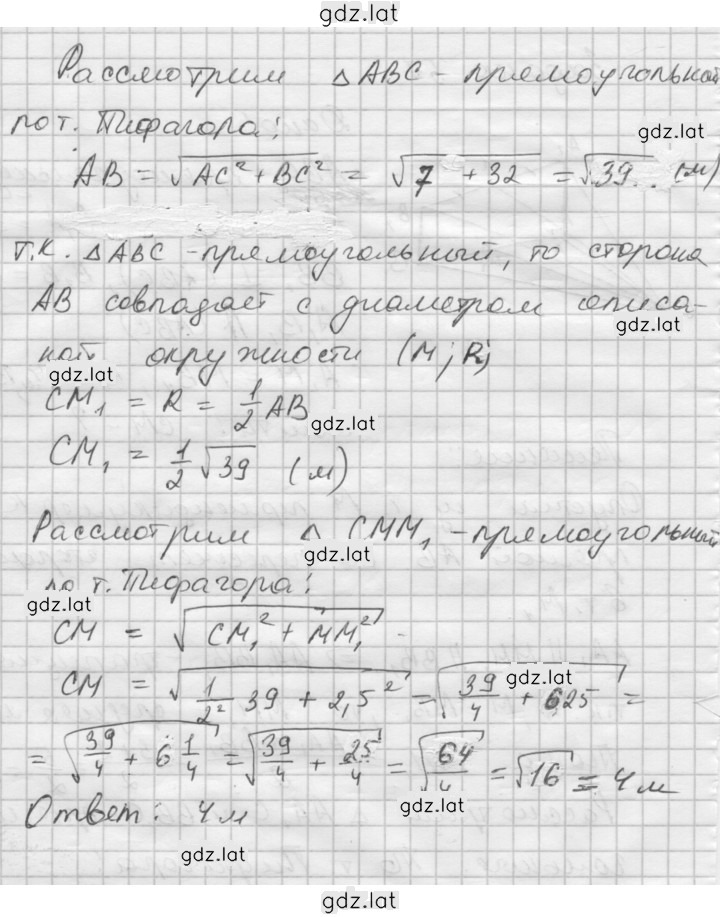 gdz.lat
Рассмотрим △ABC - прямоугольный
по т. Пифагора:
gdz.lat
AB = √AC² + BC² = √7 + 32 = √39 (м)
т.к. △ABC - прямоугольный, то сторона
AB совпадает с диаметром описа-
gdz.lat
ной окружности (M; R)
gdz.lat
CM₁ = R = 1/2 AB
gdz.lat
CM₁ = 1/2 √39 (м)
Рассмотрим △ CMM₁ - прямоугольный
gdz.lat
по т. Пифагора:
gdz.lat
CM = √CM₁² + MM₁²
CM = √1/2² 39 + 2,5² = √39/4 + 6,25 =
gdz.lat
= √39/4 + 6 1/4 = √39/4 + 25/4 = √64/4 = √16 = 4 м
gdz.lat
Ответ: 4 м
gdz.lat
gdz.lat